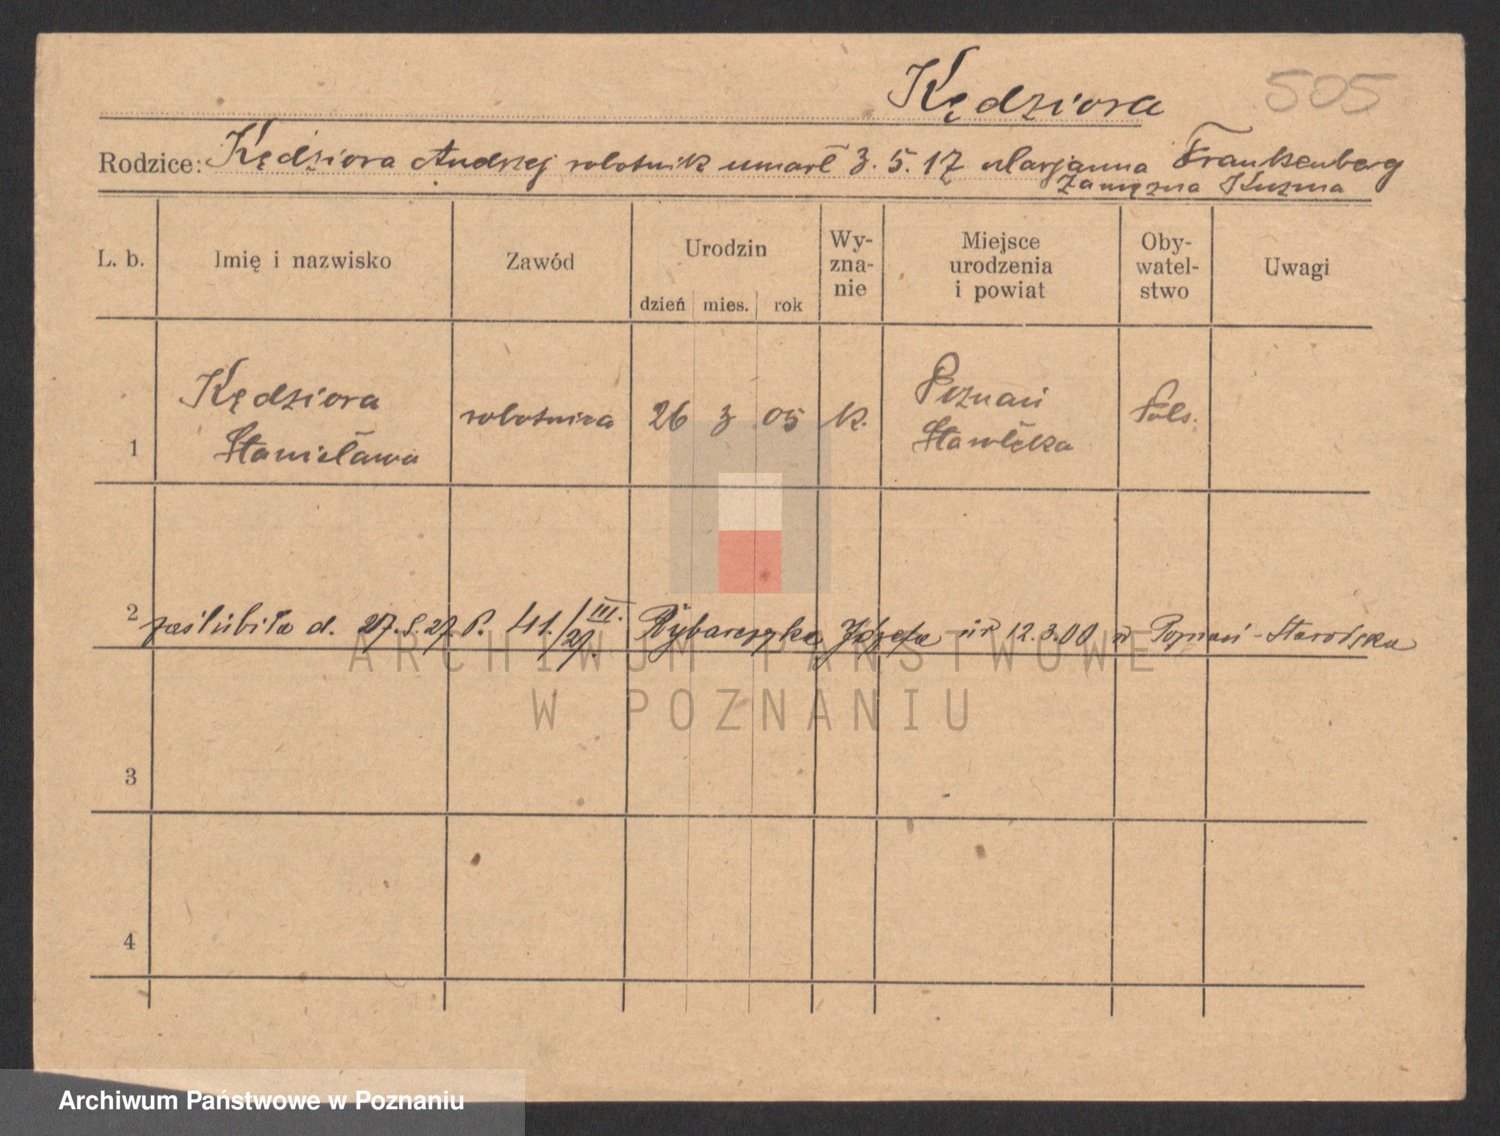 Kędziora 505
Rodzice: Kędziora Andrzej robotnik umarł 3. 5. 17 Marjanna Frankenberg
Zamężna Kuzma
L. b. Imię i nazwisko Zawód Urodzin dzień mies. rok Wy-zna-nie Miejsce urodzenia i powiat Oby-watel-stwo Uwagi
1 Kędziora Stanisława robotnica 26 3 05 k. Poznań Starołęka Pols.
2 zaślubiła d. 27.8.27 P. 41./III. 27. Rybarczyka Józefa ur 12.3.00 w Poznań-Starołęka
3
4
ARCHIWUM PAŃSTWOWE
W POZNANIU
Archiwum Państwowe w Poznaniu